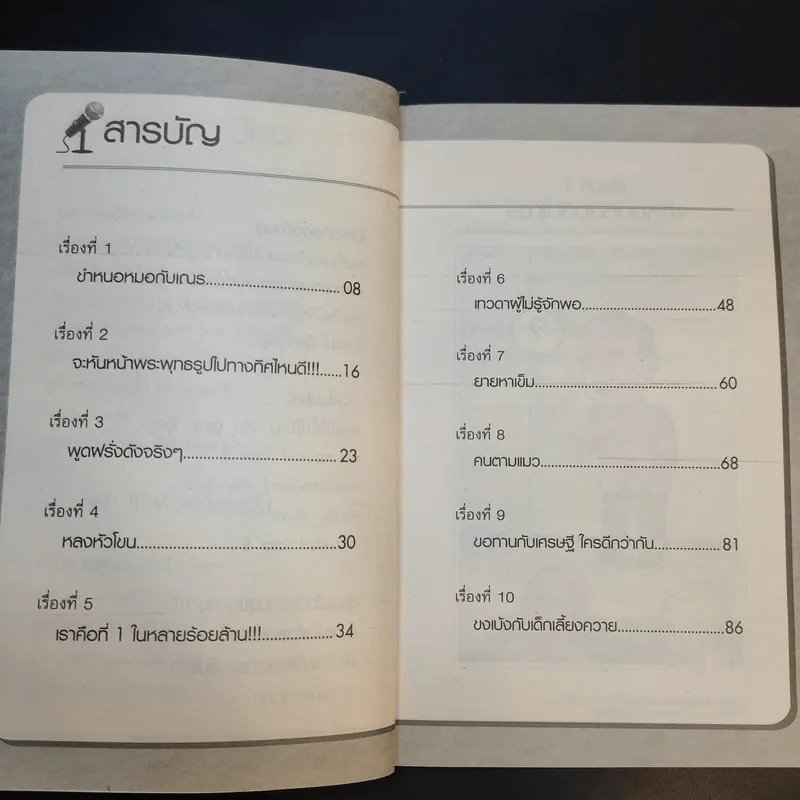 สารบัญ
เรื่องที่ 1
ขำหนอหมอกับเณร................................08
เรื่องที่ 2
จะหันหน้าพระพุทธรูปไปทางทิศไหนดี!!!.....16
เรื่องที่ 3
พูดฝรั่งดังจริงๆ...................................23
เรื่องที่ 4
หลงหัวโขน...........................................30
เรื่องที่ 5
เราคือที่ 1 ในหลายร้อยล้าน!!!.................34
เรื่องที่ 6
เทวดาผู้ไม่รู้จักพอ................................48
เรื่องที่ 7
ยายหาเข็ม...........................................60
เรื่องที่ 8
คนตามแมว..........................................68
เรื่องที่ 9
ขอทานกับเศรษฐี ใครดีกว่ากัน................81
เรื่องที่ 10
ขงเบ้งกับเด็กเลี้ยงควาย.........................86